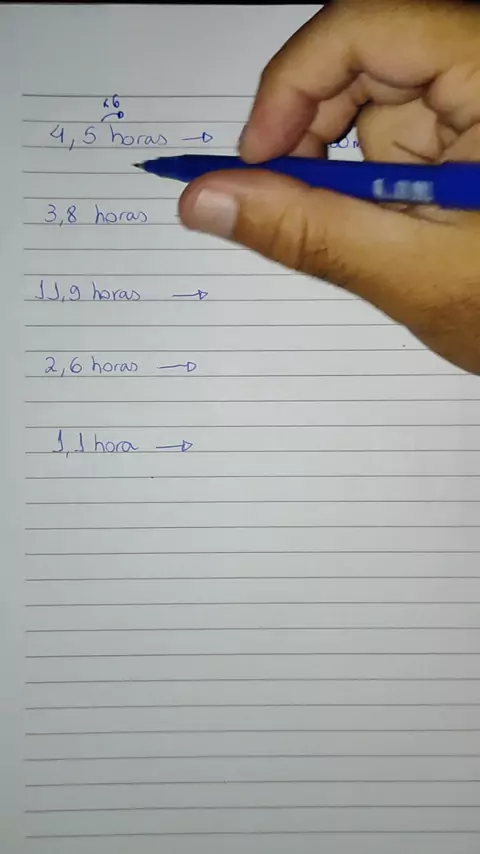 x6
4,5 horas →
3,8 horas
11,9 horas →
2,6 horas →
1,1 hora →